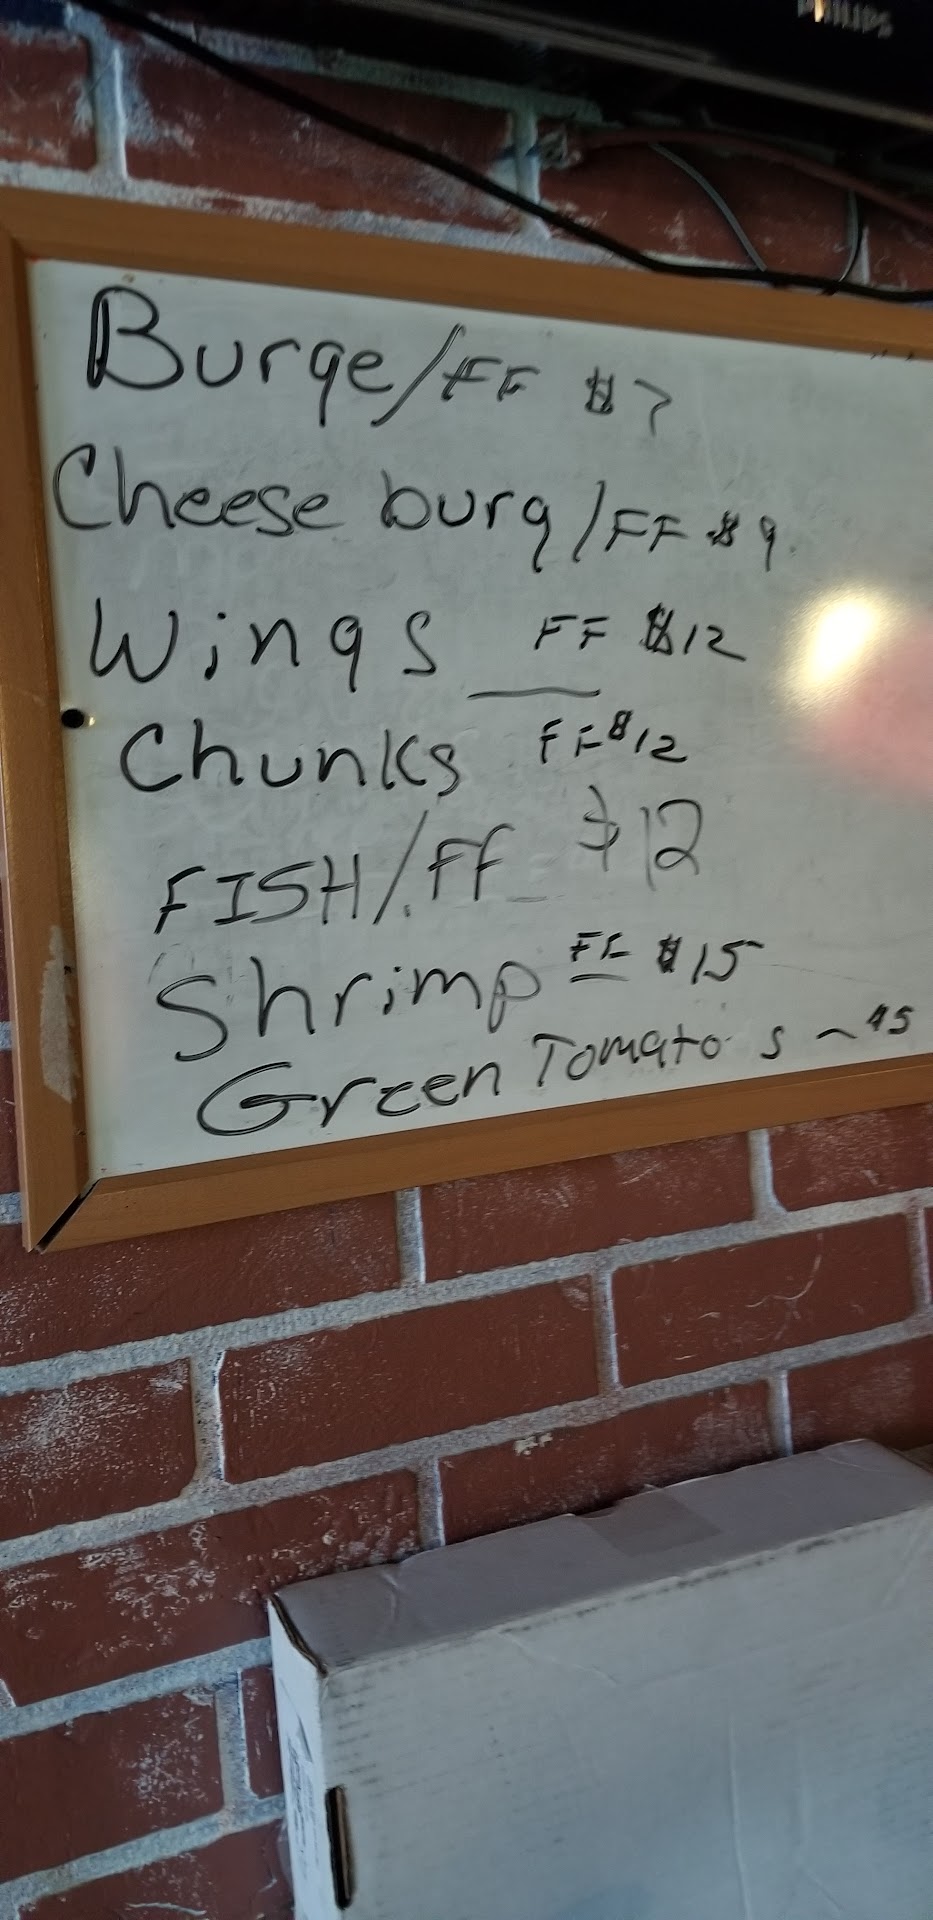 PHILIPS
Burge/FF $7
Cheese burg/FF $9
Wings FF $12
Chunks FF $12
FISH/FF $12
Shrimp FF $15
Green Tomato s ~ $5